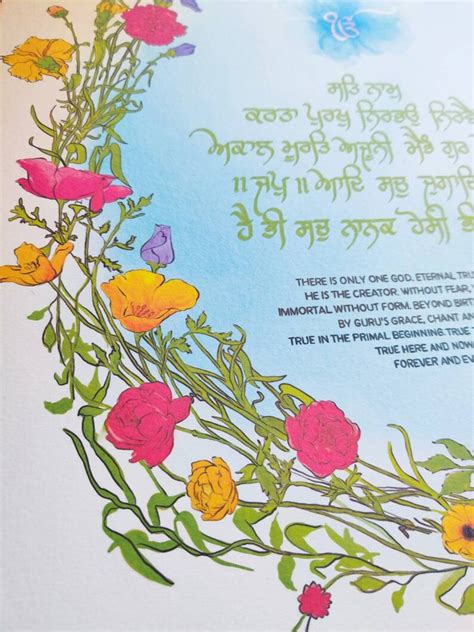 ੴ
ਸਤਿ ਨਾਮੁ
ਕਰਤਾ ਪੁਰਖੁ ਨਿਰਭਉ
ਅਕਾਲ ਮੂਰਤਿ ਅਜੂਨੀ ਸੈਭੰ ਗੁਰ
॥ ਜਪੁ ॥ ਆਦਿ ਸਚੁ
ਹੈ ਭੀ ਸਚੁ ਨਾਨਕ ਹੋਸੀ
THERE IS ONLY ONE GOD. ETERNAL
HE IS THE CREATOR, WITHOUT FEAR,
IMMORTAL WITHOUT FORM. BEYOND
BY GURU'S GRACE, CHANT
TRUE IN THE PRIMAL BEGINNING. TRUE
TRUE HERE AND
FOREVER AND